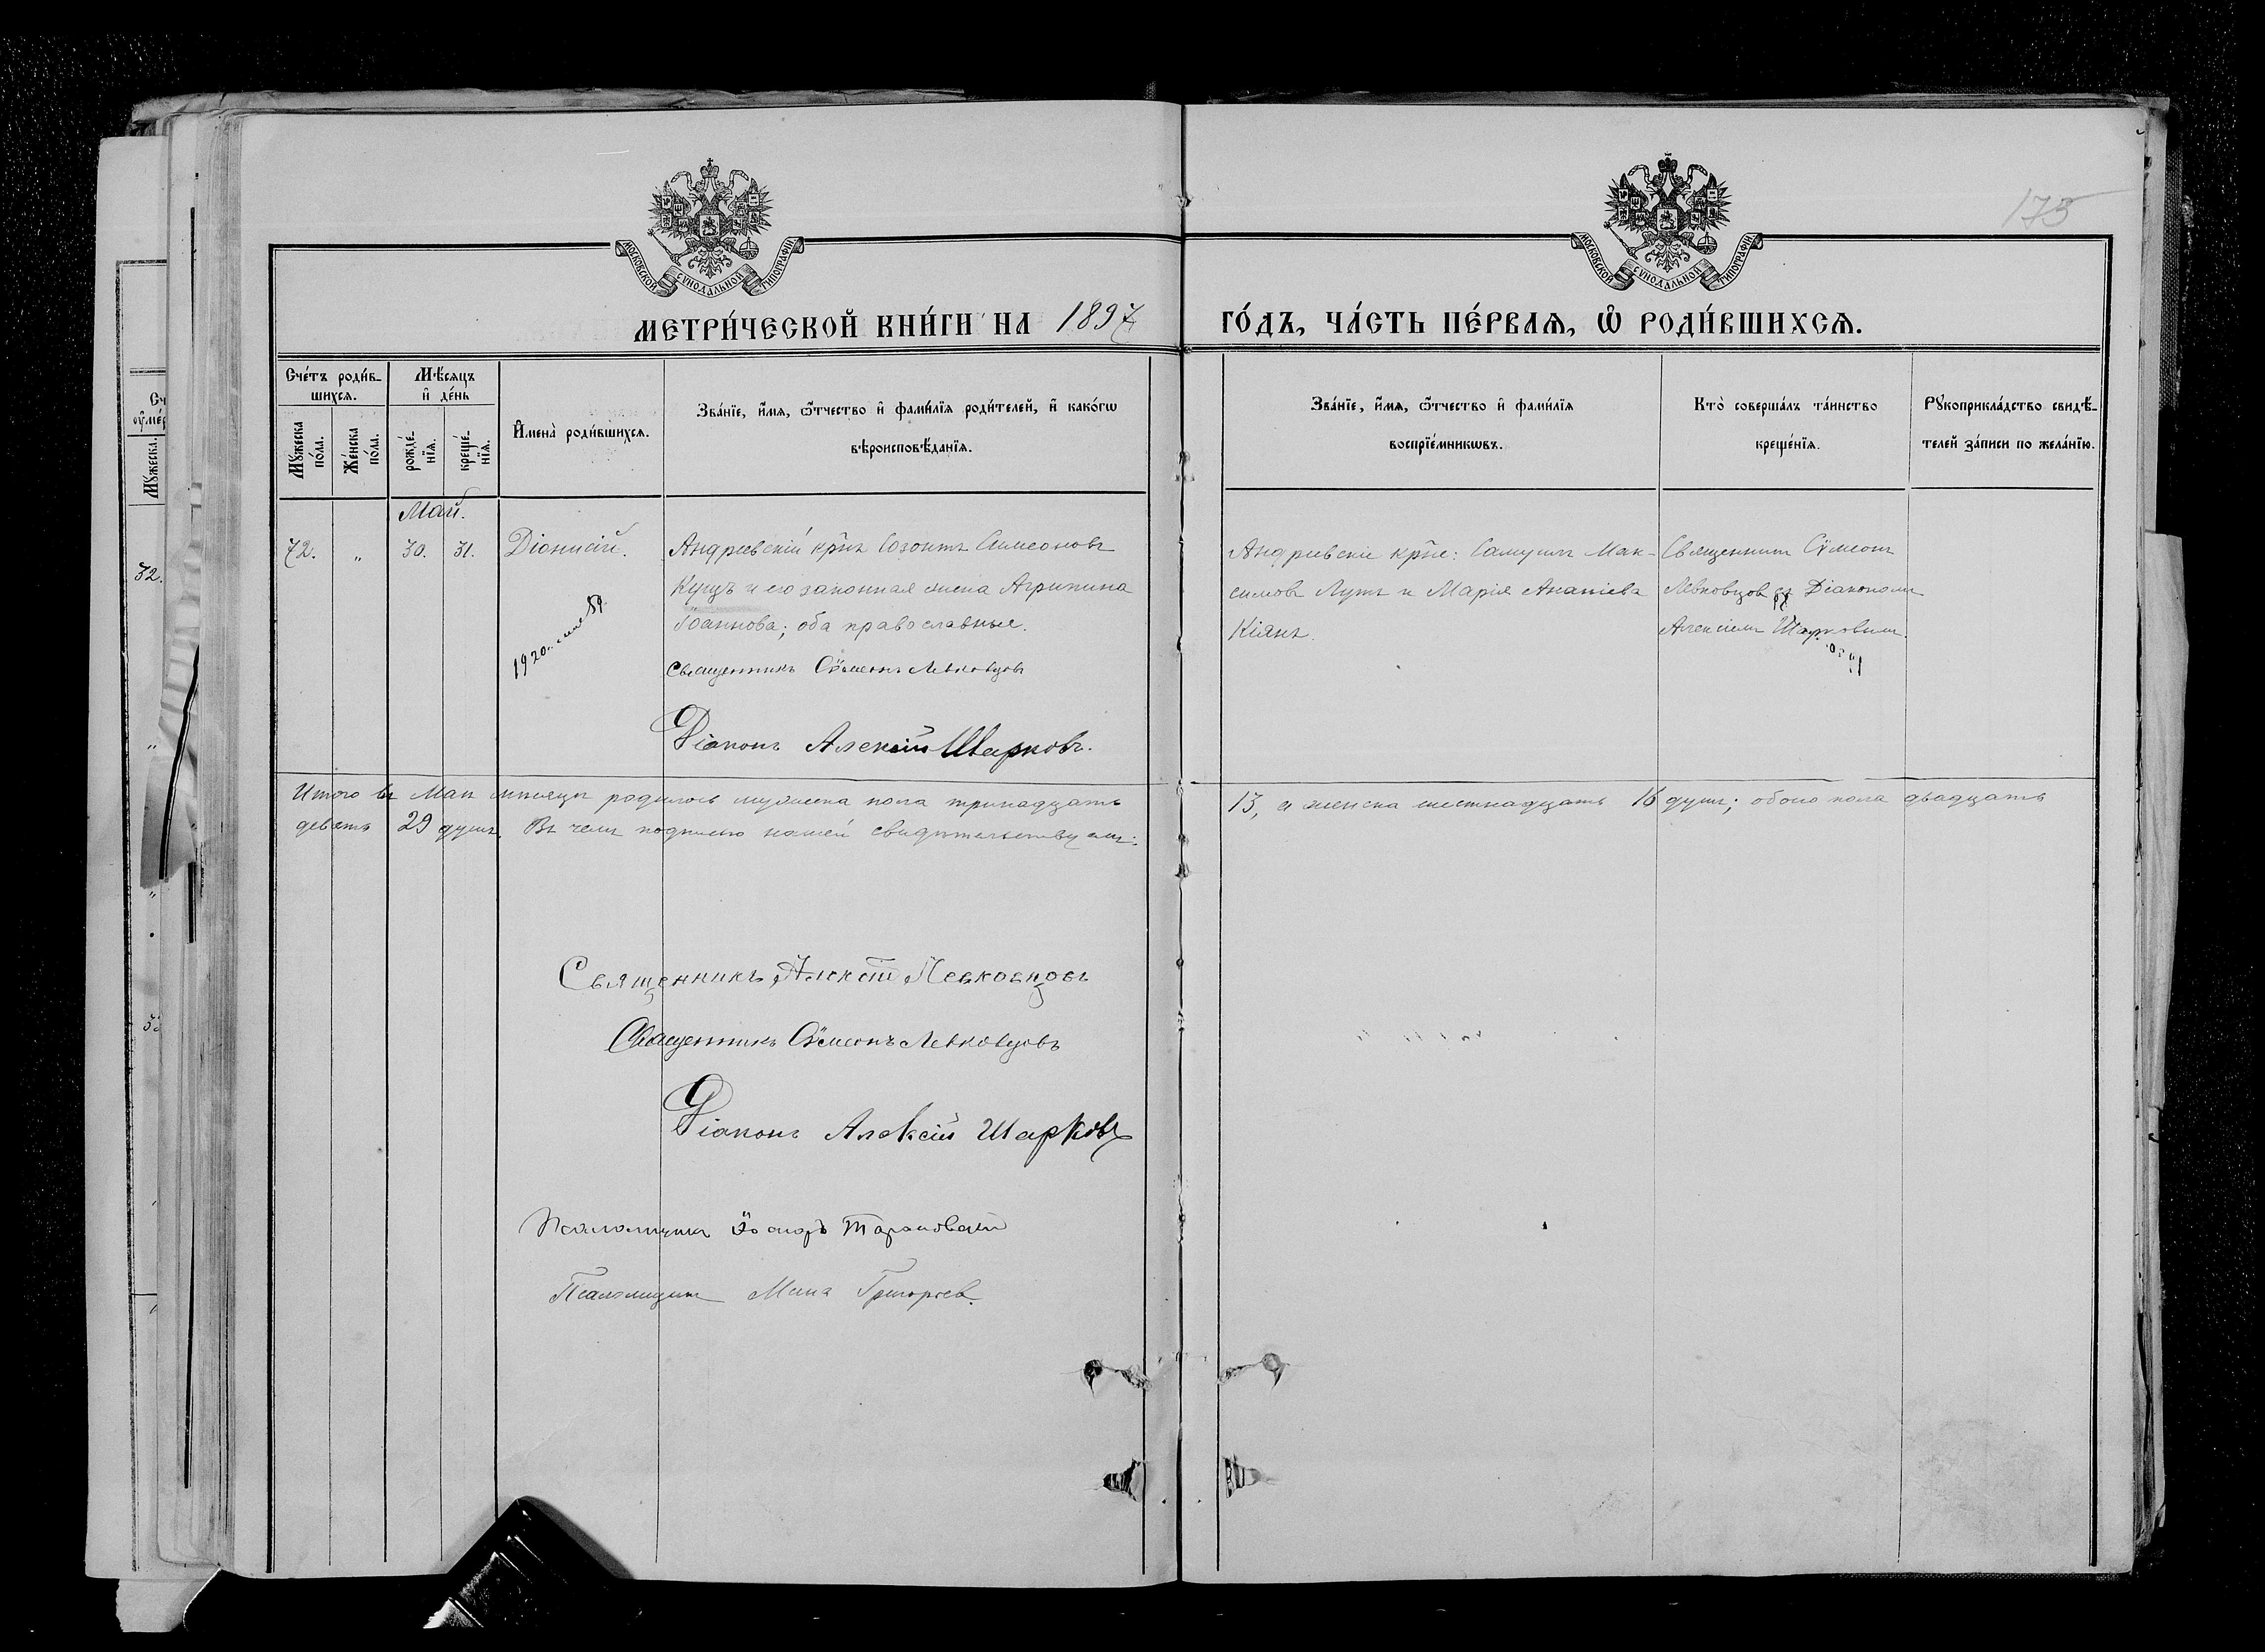 МОСКОВСКОЙ СѴНОДАЛЬНОЙ ТИПОГРАФІИ
МОСКОВСКОЙ СѴНОДАЛЬНОЙ ТИПОГРАФІИ
175
МЕТРИ́ЧЕСКОЙ КНИ́ГИ НА 1897
ГО́ДЪ, ЧА́СТЬ ПЕ́РВАѦ, Ѡ҆ РОДИ́ВШИХСѦ.
Сче́тъ роди́в-
шихсѧ.
Мꙋ́жеска по́ла.
Же́нска по́ла.
Мѣ́сяцъ
и҆ де́нь
рожде́-
нїѧ.
креще́-
нїѧ.
И҆мена̀ роди́вшихсѧ.
Зва́нїе, и҆́мѧ, ѻ҆́тчество и҆ фами́лїѧ роди́телей, и҆ како́гѡ
вѣроисповѣ́данїѧ.
Зва́нїе, и҆́мѧ, ѻ҆́тчество и҆ фами́лїѧ
воспрїе́мникѡвъ.
Кто̀ соверша́лъ та́инство
креще́нїѧ.
Рꙋкоприкла́дство свидѣ́-
телей за́писи по жела́нїю.
Май.
72. " 30. 31. Діонисій.
Андреевскій крнъ Созонтъ Симеоновъ
Куцъ и его законная жена Агрипина
Іоаннова; оба православные.
Священникъ Сѵмеонъ Левковцовъ
Діаконъ Алексій Шарковъ.
1920
Андреевскіе крне: Самуилъ Мак-
симовъ Лутъ и Марія Ананіева
Кіянъ.
Священникъ Сѵмеонъ
Левковцовъ съ Діакономъ
Алексіемъ Шарковымъ.
Итого въ Маѣ мѣсяцѣ родилось мужеска пола тринадцать 13, а женска шестнадцать 16 душъ; обоего пола двадцать
девять 29 душъ. Въ чемъ подписью нашей свидѣтельствуемъ:
Священникъ Алексій Левковцовъ
Священникъ Сѵмеонъ Левковцовъ
Діаконъ Алексій Шарковъ
Псаломщикъ Тарановскій
Псаломщикъ Мина Григорьев.
32.